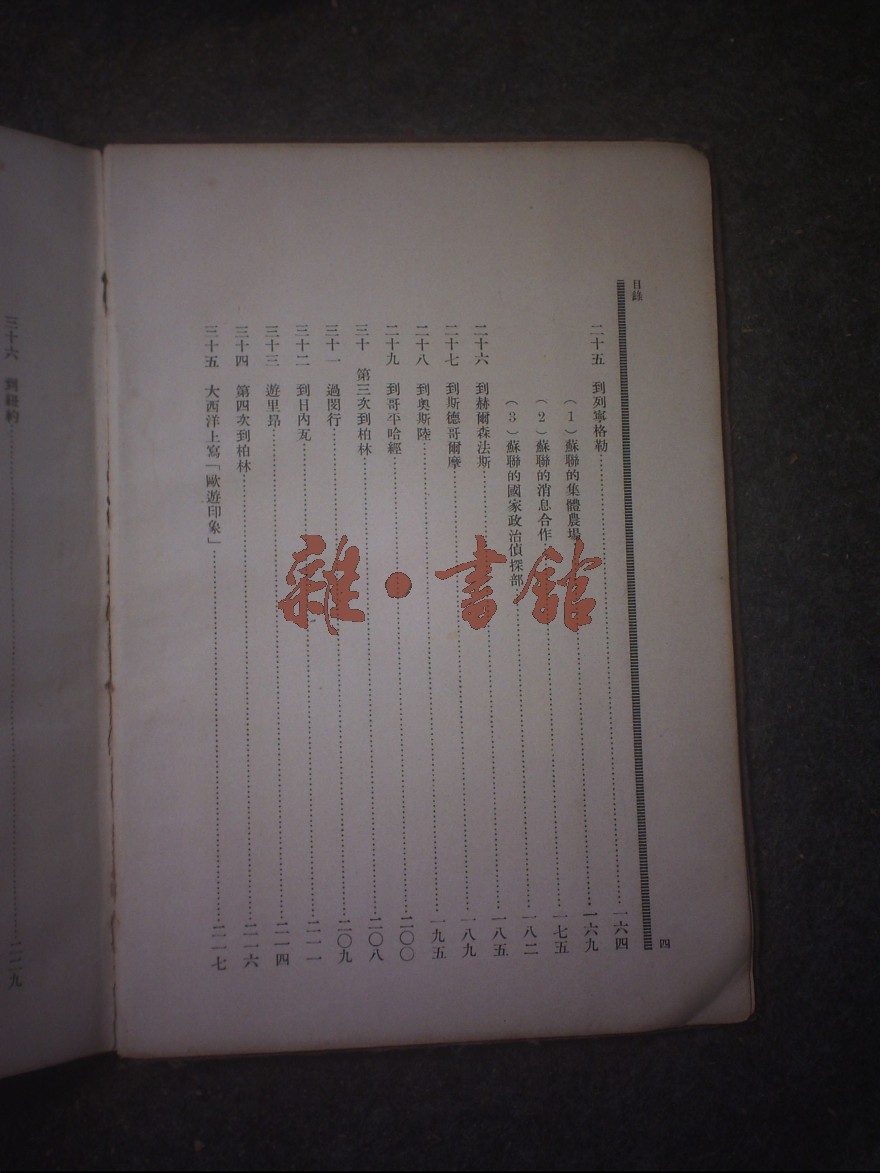 目錄
四
二十五 到列寧格勒……一六四
(1)蘇聯的集體農場……一六九
(2)蘇聯的消息合作……一七五
(3)蘇聯的國家政治偵探部……一八二
二十六 到赫爾森法斯……一八五
二十七 到斯德哥爾摩……一八九
二十八 到奧斯陸……一九五
二十九 到哥平哈經……二〇〇
三十 第三次到柏林……二〇八
三十一 過閔行……二〇九
三十二 到日內瓦……二一一
三十三 遊里昂……二一四
三十四 第四次到柏林……二一六
三十五 大西洋上寫「歐遊印象」……二一七
三十六 到紐約……二二九
雜·書館